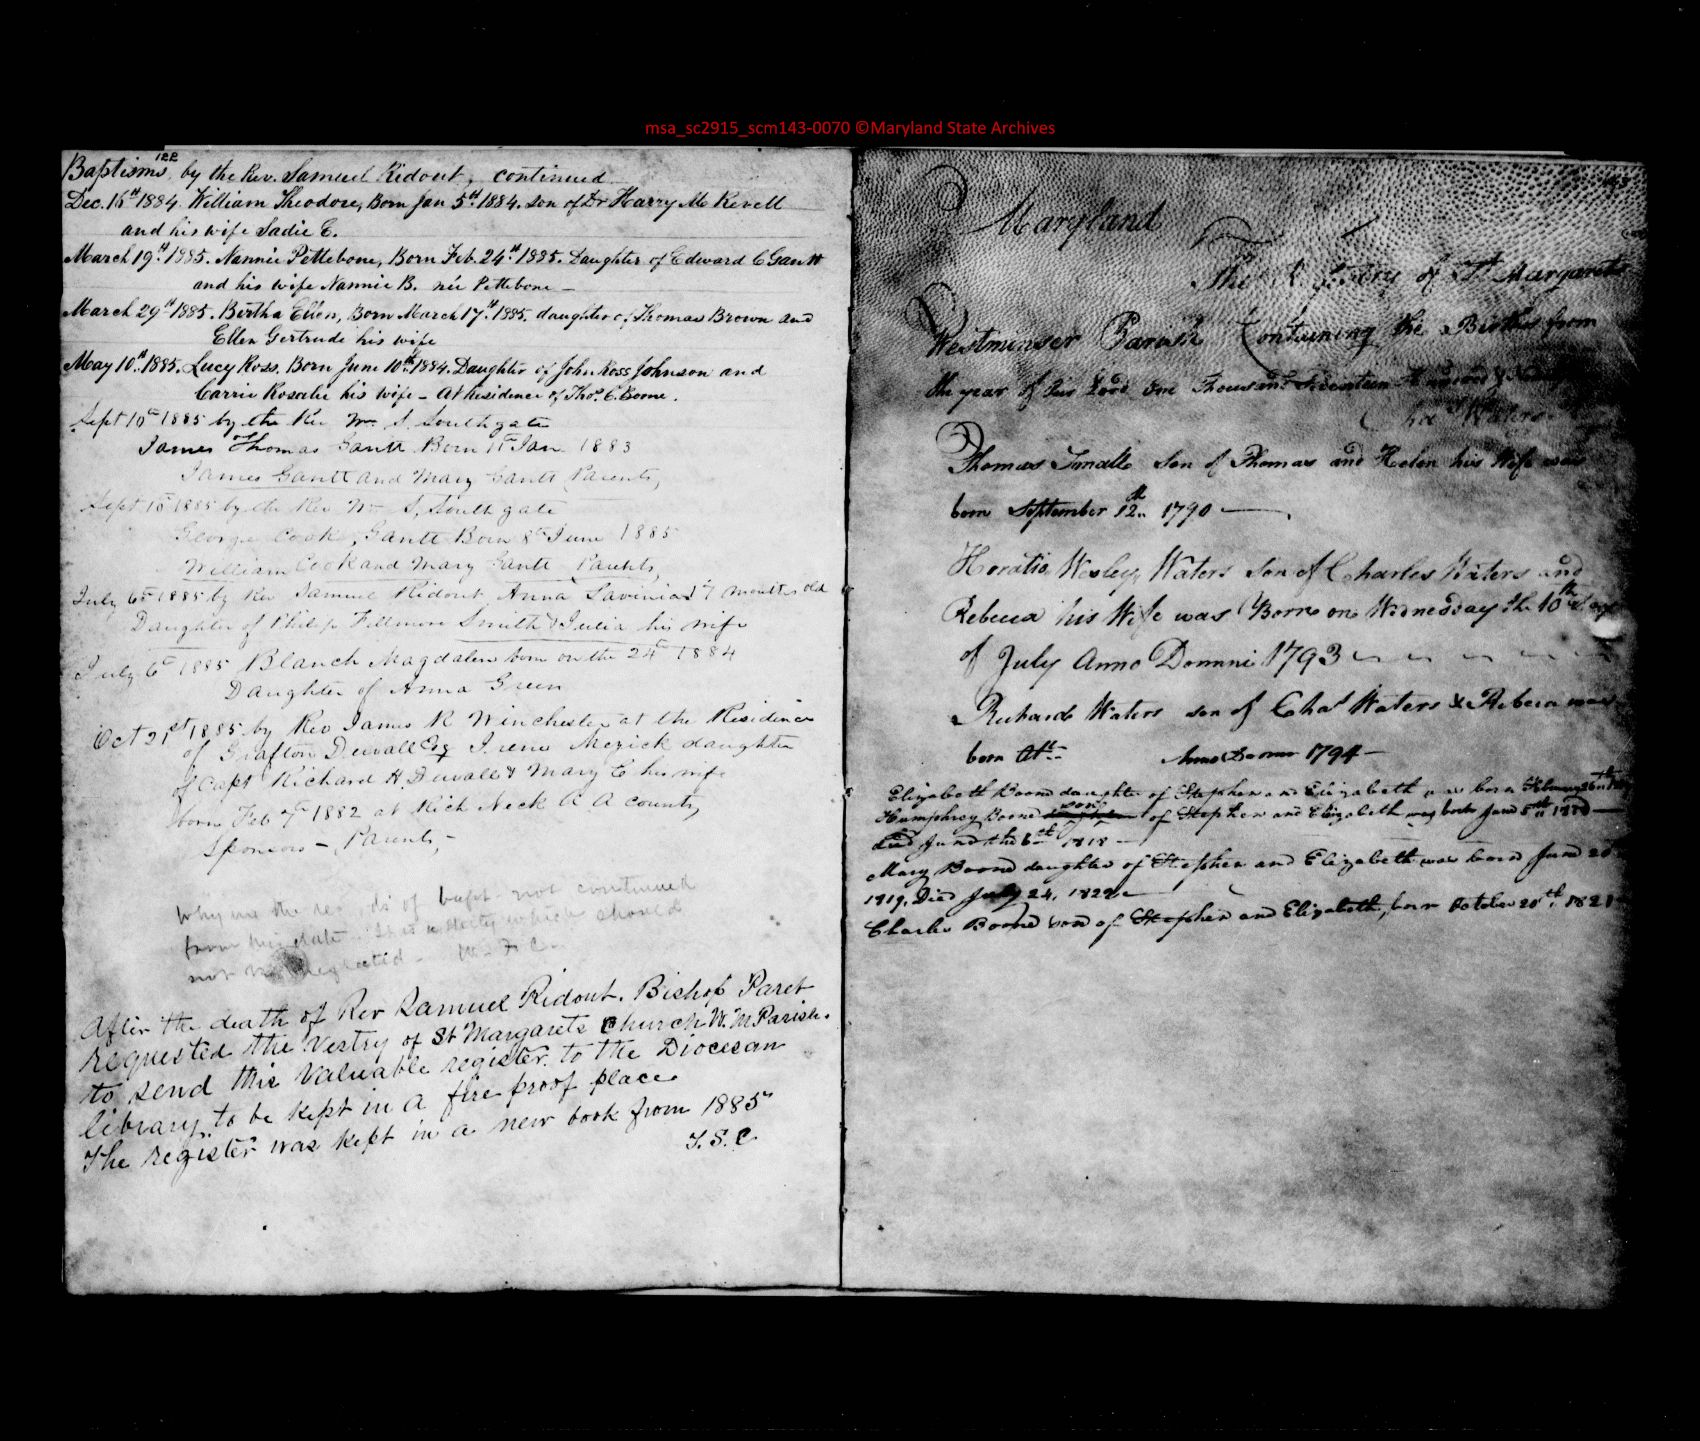 msa_sc2915_scm143-0070 ©Maryland State Archives
122
Baptisms, by the Rev. Samuel Ridout, continued
Dec. 16th 1884. William Theodore, Born Jan 5th 1884. son of Dr Harry M Revell
and his wife Sadie E.
March 19th 1885. Nannie Pettebone, Born Feb. 24th 1885. Daughter of Edward C Gantt
and his wife Nannie B. née Pettebone —
March 29th 1885. Bertha Ellen, Born March 17th 1885. daughter of Thomas Brown and
Ellen Gertrude his wife
May 10th 1885. Lucy Ross. Born June 10th 1884. Daughter of John Ross Johnson and
Carrie Rosalie his wife — At Residence of Thos. C. Boone.
Sept 10th 1885 by the Rev Wm S. Southgate
James Thomas Gantt Born Jan 1883
James Gantt and Mary Gantt Parents,
Sept 10 1885 by the Rev Wm S. Southgate
George Cook, Gantt Born 8th June 1885
William Cook and Mary Gantt Parents,
July 6th 1885 by Rev Samuel Ridout Anna Lavinia 17 months old
Daughter of Philip Fillmore Smith & Julia his wife
July 6th 1885 Blanch Magdalen born on the 24th 1884
Daughter of Anna Green
Oct 21st 1885 by Rev James R Winchester at the Residence
of Grafton Duvall Esq Irene Mezick daughter
of Capt Richard H Duvall & Mary E his wife
born Feb 7th 1882 at Rich Neck A A county,
Sponsors — Parents,
Why are the of bapt. not continued
from this date. It is a duty which should
not be neglected — W. F. C.
After the death of Rev Samuel Ridout. Bishop Paret
requested the Vestry of St Margarets Church W. M Parish.
to send this valuable register to the Diocesan
library, to be kept in a fire proof place
The register was kept in a new book from 1885
T. S. C
Maryland
The Registery of St Margarets
Westminser Parish Containing the Births from
the year of our Lord One Thousand Seventeen Hundred &
Chas Waters
Thomas Smalle Son of Thomas and Helen his Wife was
born September 12th 1790 —
Horatio Wesley Waters Son of Charles Waters and
Rebecca his Wife was Born on Wednesday the 10th Day
of July Anno Domni 1793
Richard Waters son of Chas Waters & Rebecca was
born Anno Domni 1794 —
Elizabeth Boone daughter of Stephen and Elizabeth was born February 26th
Humphrey Boone son of Stephen and Elizabeth was born June 5th 1818 —
died June the 6th 1818 —
Mary Boone daughter of Stephen and Elizabeth was born June 20th
1819, Died July 24, 1822 —
Charles Boone son of Stephen and Elizabeth, born October 20th, 1821